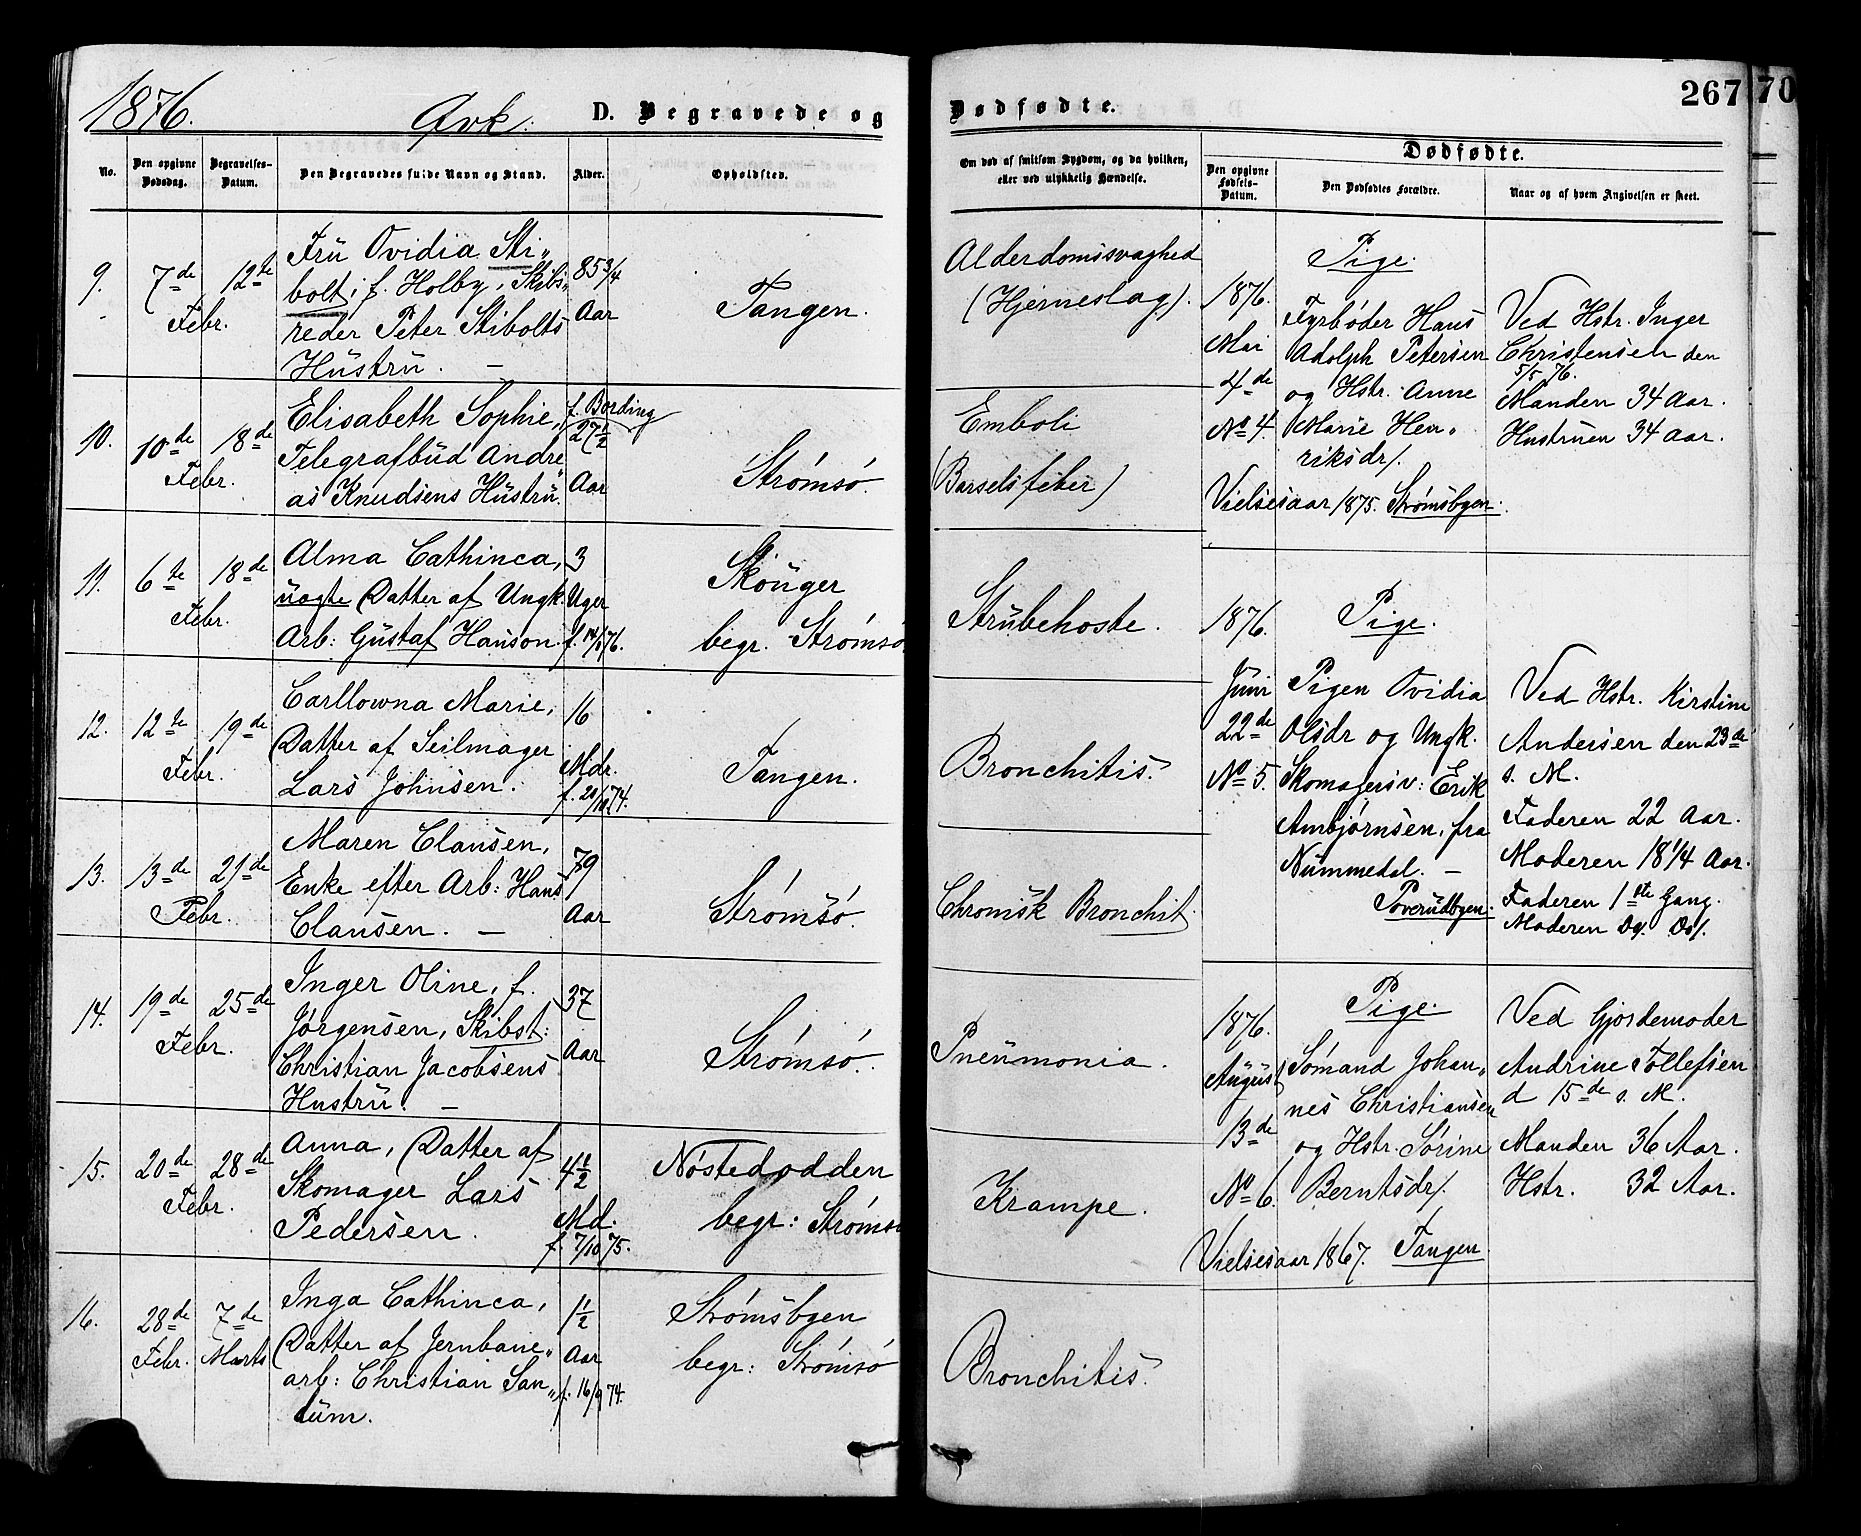 1876.
Qvk.
D. Begravede og
No.
Den opgivne
Dødsdag.
Begravelses-
Datum.
Den Begravedes fulde Navn og Stand.
Alder.
Opholdsted.
9.
7de
Febr.
12te
Frü Ovidia Sti„
bolt, f. Holby, Skibs„
reder Peter Stibolts
Hüstrü. —
85 3/4
Aar
Tangen.
10.
10de
Febr.
18de
Elisabeth Sophie, f. Bording
Telegrafbüd Andre„
as Knudsens Hüstrü.
27 1/2
Aar
Strömsö.
11.
6te
Febr.
18de
Alma Cathinca,
üægte Datter af Ungk.
Arb: Güstaf Hanson.
3
Uger
f. 14/1 76.
Sköüger
begr. Strömsö
12.
12te
Febr.
19de
Carllowna Marie,
Datter af Seilmager
Lars Johnsen.
16
Mdr.
f. 20/10 74.
Tangen.
13.
13de
Febr.
21de
Maren Clausen,
Enke efter Arb: Hans
Clausen. —
79
Aar
Strömsö.
14.
19de
Febr.
25de
Inger Oline, f.
Jörgensen, Skibst:
Christian Jacobsens
Hustrü. —
37
Aar
Strömsö.
15.
20de
Febr.
28de
Anna, Datter af
Skomager Lars
Pedersen.
4 1/2
Md.
f. 7/10 75.
Nöstedodden
begr: Strömsö
16.
28de
Febr.
7de
Marts
Inga Cathinca,
Datter af Jernbane„
arb: Christian San„
tüm.
1 1/2
Aar
f. 16/9 74.
Strömsbyen
begr: Strömsö
Dødfødte.
267
70
Om død af smitsom Sygdom, og da hvilken,
eller ved ulykkelig Hændelse.
Dødfødte.
Den opgivne
Fødsels-
Datum.
Den Dødfødtes Forældre.
Naar og af hvem Angivelsen er skeet.
Alderdomssvaghed
(Hjerneslag).
Emboli
(Barselsfeber)
Strübehoste.
Bronchitis.
Chronisk Bronchit.
Pneümonia.
Krampe.
Bronchitis.
1876.
Mai
4de
No 4.
Pige.
Fyrböder Hans
Adolph Petersen
og Hstr. Anne
Marie Hen„
riksdr.
Vielsesaar 1875. Strömsbyen.
Ved Hstr. Inger
Christensen den
5/5 76.
Manden 34 Aar.
Hustruen 34 Aar.
1876.
Jüni
22de
No 5.
Pige.
Pigen Ovidia
Olsdr og Ungk.
Skomagersv: Erik
Ambjörnsen, fra
Nümmedal. —
Poverüdbyen.
Ved Hstr. Kirstine
Andersen den 23de
s. M.
Faderen 22 Aar.
Moderen 18 1/4 Aar.
Faderen 1ste Gang.
Moderen Do. Do.
1876.
August
13de
No 6.
Pige.
Sömand Johan„
nes Christiansen
og Hstr. Sörine
Berntsdr.
Vielsesaar 1867. Tangen.
Ved Gjordemoder
Andrine Tollefsen
d 15de s. M.
Manden 36 Aar.
Hstr. 32 Aar.